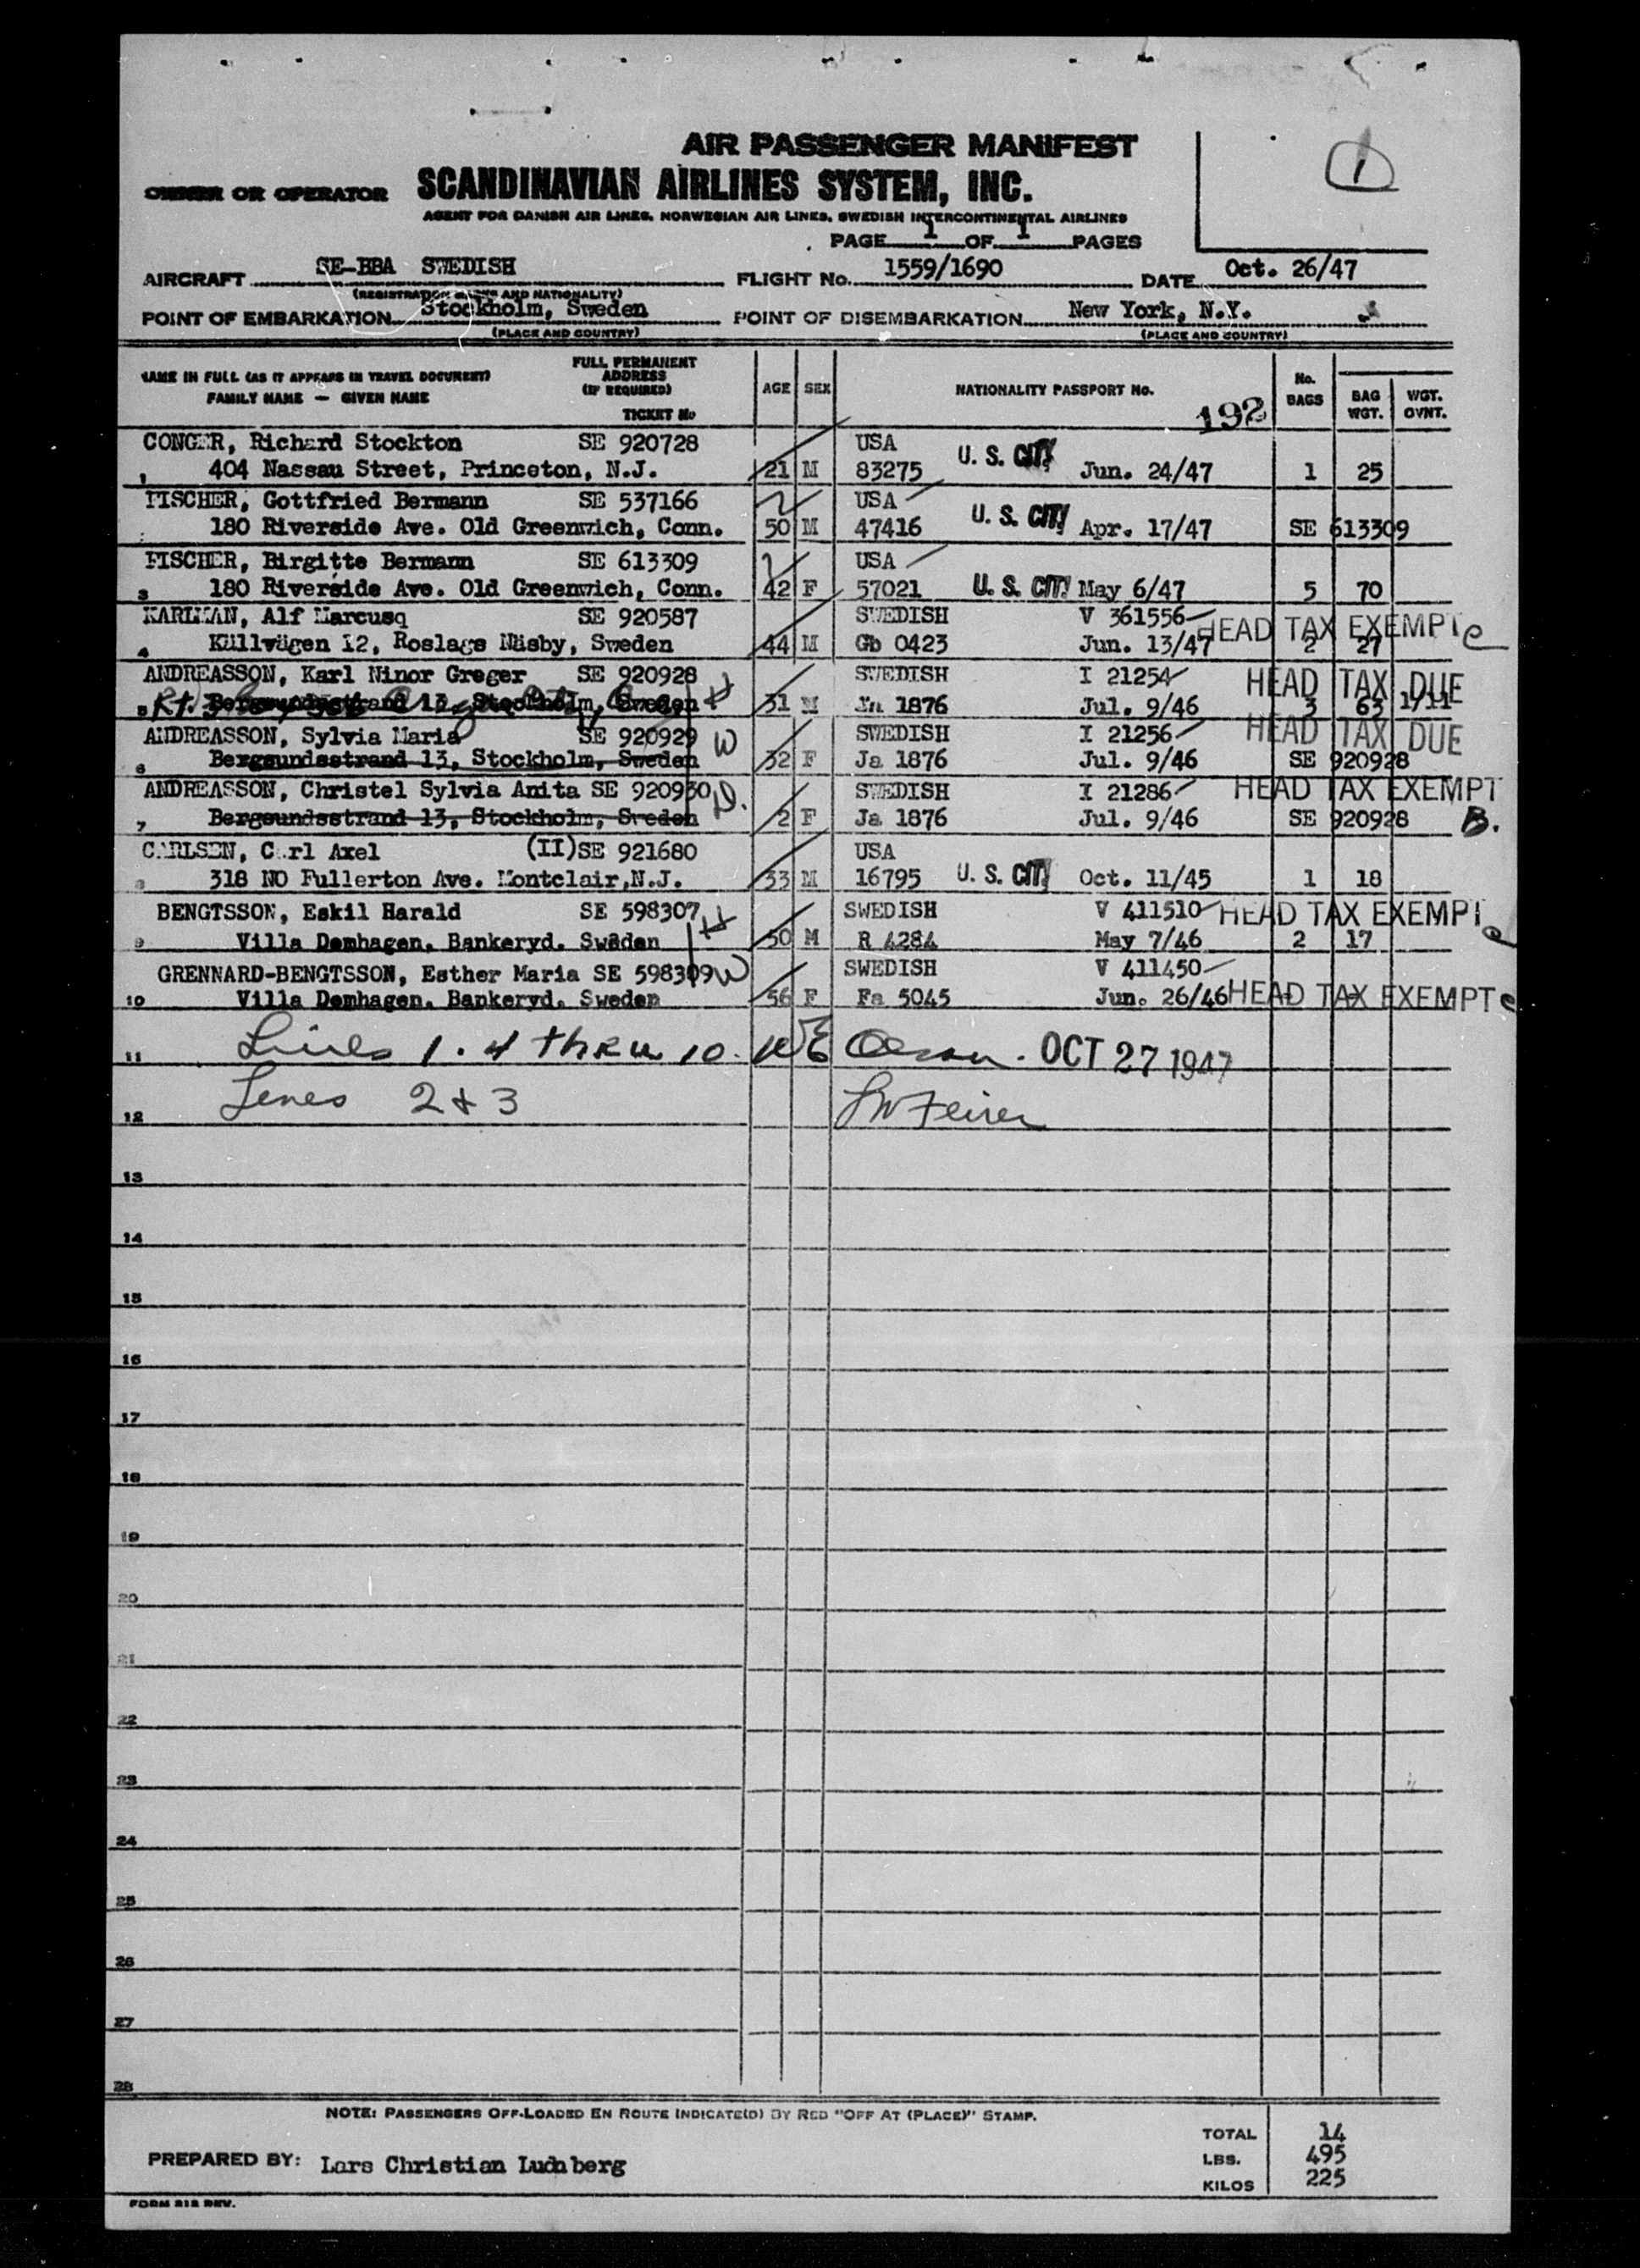 1
AIR PASSENGER MANIFEST
OWNER OR OPERATOR SCANDINAVIAN AIRLINES SYSTEM, INC.
AGENT FOR DANISH AIR LINES, NORWEGIAN AIR LINES, SWEDISH INTERCONTINENTAL AIRLINES
PAGE 1 OF 1 PAGES
AIRCRAFT SE-BBA SWEDISH FLIGHT No. 1559/1690 DATE Oct. 26/47
(REGISTRATION MARKS AND NATIONALITY)
POINT OF EMBARKATION Stockholm, Sweden POINT OF DISEMBARKATION New York, N.Y.
(PLACE AND COUNTRY) (PLACE AND COUNTRY)
NAME IN FULL (AS IT APPEARS IN TRAVEL DOCUMENT) FAMILY NAME — GIVEN NAME FULL PERMANENT ADDRESS (IF REQUIRED) TICKET No AGE SEX NATIONALITY PASSPORT No. No. BAGS BAG WGT. WGT. OVNT.
192
CONGER, Richard Stockton SE 920728 USA U. S. CIT
1 404 Nassau Street, Princeton, N.J. 21 M 83275 Jun. 24/47 1 25
FISCHER, Gottfried Bermann SE 537166 USA U. S. CIT
180 Riverside Ave. Old Greenwich, Conn. 50 M 47416 Apr. 17/47 SE 613309
FISCHER, Birgitte Bermann SE 613309 USA
3 180 Riverside Ave. Old Greenwich, Conn. 42 F 57021 U. S. CIT May 6/47 5 70
KARLMAN, Alf Marcusq SE 920587 SWEDISH V 361556 HEAD TAX EXEMPT e
4 Källvägen 12, Roslags Näsby, Sweden 44 M Gb 0423 Jun. 13/47 2 27
ANDREASSON, Karl Ninor Greger SE 920928 H SWEDISH I 21254 HEAD TAX DUE
5 Bergsundsstrand 13, Stockholm, Sweden 31 M Ja 1876 Jul. 9/46 3 63
ANDREASSON, Sylvia Maria SE 920929 W SWEDISH I 21256 HEAD TAX DUE
6 Bergsundsstrand 13, Stockholm, Sweden 32 F Ja 1876 Jul. 9/46 SE 920928
ANDREASSON, Christel Sylvia Anita SE 920930 D. SWEDISH I 21286 HEAD TAX EXEMPT
7 Bergsundsstrand 13, Stockholm, Sweden 2 F Ja 1876 Jul. 9/46 SE 920928 B.
CARLSEN, Carl Axel (II)SE 921680 USA
8 318 NO Fullerton Ave. Montclair,N.J. 33 M 16795 U. S. CIT Oct. 11/45 1 18
BENGTSSON, Eskil Harald SE 598307 H SWEDISH V 411510 HEAD TAX EXEMPT e
9 Villa Demhagen, Bankeryd, Sweden 50 M R 4284 May 7/46 2 17
GRENNARD-BENGTSSON, Esther Maria SE 598309 W SWEDISH V 411450
10 Villa Demhagen, Bankeryd, Sweden 56 F Fa 5045 Jun. 26/46 HEAD TAX EXEMPT e
11 Lines 1. 4 thru 10. OCT 27 1947
12 Lines 2 & 3
13
14
15
16
17
18
19
20
21
22
23
24
25
26
27
28
NOTE: PASSENGERS OFF-LOADED EN ROUTE INDICATE(D) BY RED "OFF AT (PLACE)" STAMP.
TOTAL 14
PREPARED BY: Lars Christian Luchberg LBS. 495
KILOS 225
FORM 212 REV.